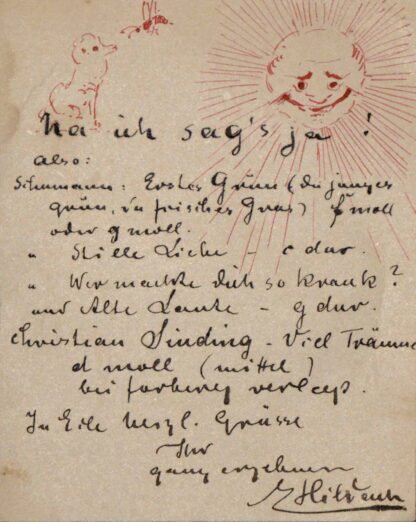 Na ich sag's ja!
also:
Schumann: Erstes Grün (du junges
grün, du frisches Gras) f moll
oder g moll.
" Stille Liebe - c dur.
" Wer machte dich so krank?
und Alte Laute - g dur.
Christian Sinding - Viel Träume
d moll (mittel)
bei forberg verlegt.
In Eile herzl. Grüsse
Ihr
ganz ergebener